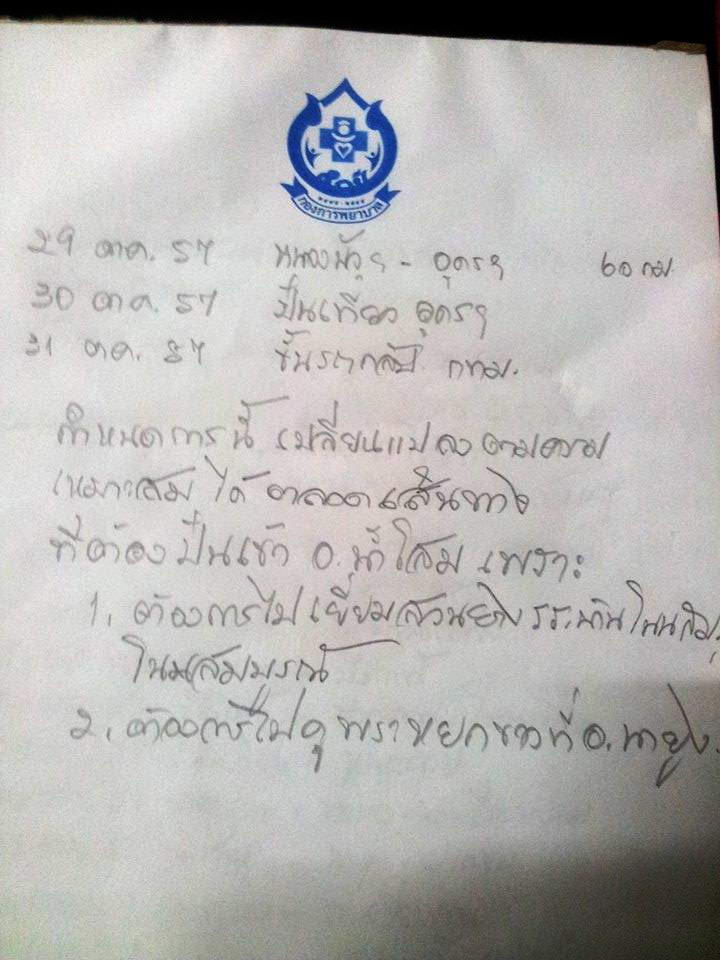 กองการพยาบาล
29 ตค. 57 หนองบัวฯ - อุดรฯ 60 กม.
30 ตค. 57 ปั่นเที่ยว อุดรฯ
31 ตค. 57 ขึ้นรถกลับ กทม.
กำหนดการนี้ เปลี่ยนแปลงตามความ
เหมาะสม ได้ตลอดเส้นทาง
ที่ต้องปั่นเข้า อ.น้ำโสม เพราะ
1. ต้องการไปเยี่ยมสวนยาง
โนนสมบูรณ์
2. ต้องการไปดู พระหยกขาวที่ อ.นายูง.